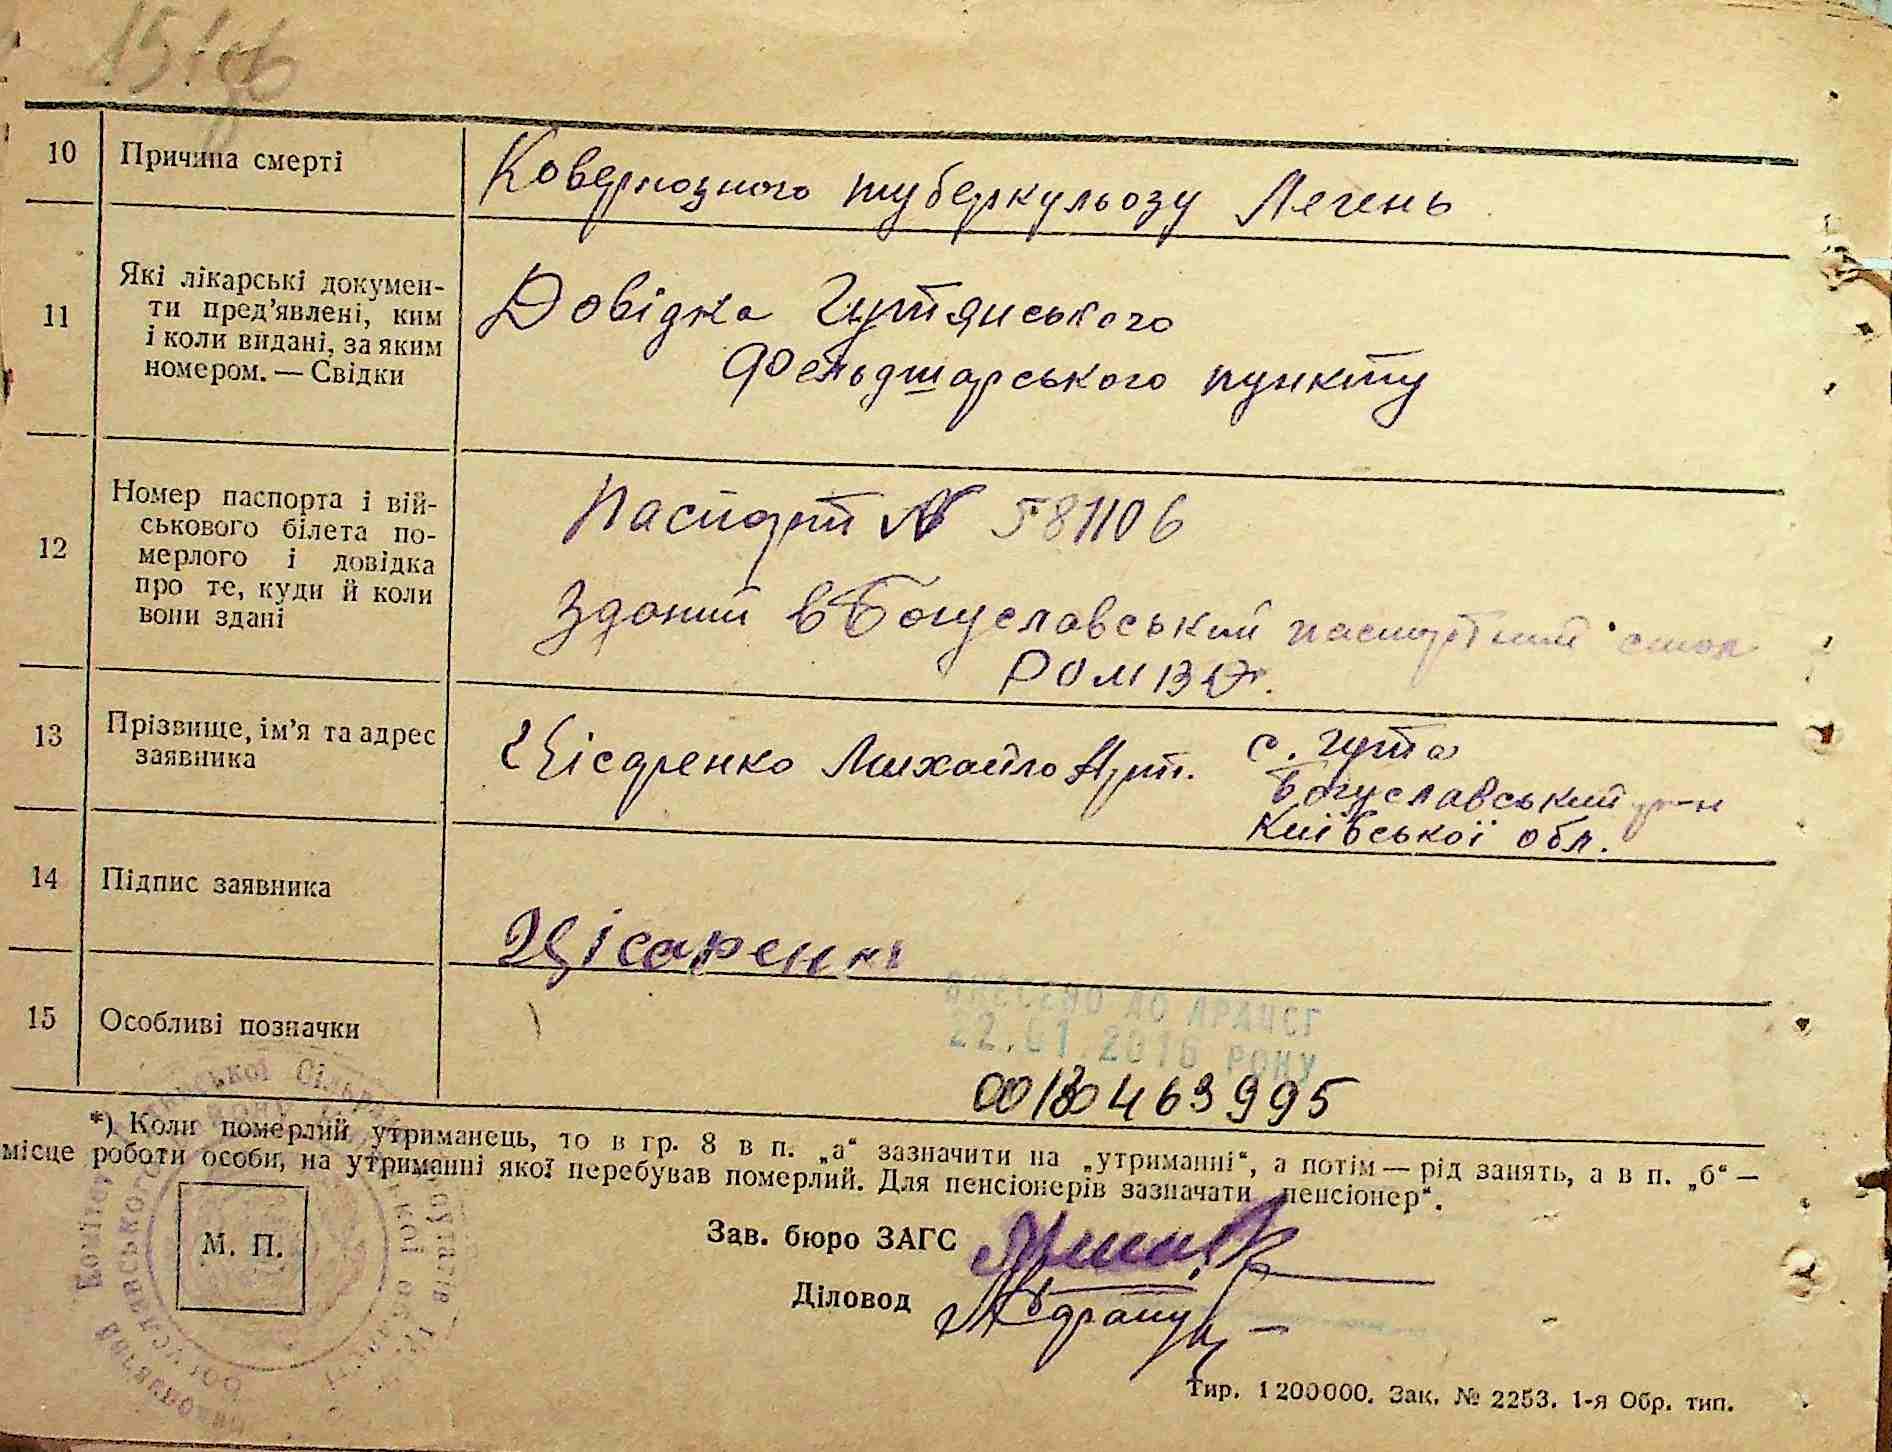 10 Причина смерті
Ковернозного туберкульозу Легень
11 Які лікарські докумен-
ти пред'явлені, ким
і коли видані, за яким
номером. — Свідки
Довідка Гутянського
Фельдшарського пункту
12 Номер паспорта і вій-
ськового білета по-
мерлого і довідка
про те, куди й коли
вони здані
Паспорт № 581106
Зданий в Богуславський паспортний стол
РОМВД.
13 Прізвище, ім'я та адрес
заявника
Цісаренко Михайло Арт.
с. Гута
Богуславський р-н
Київської обл.
14 Підпис заявника
Цісаренк
15 Особливі позначки
ВНЕСЕНО ДО ДРАЦСГ
22.01.2016 РОКУ
00130463995
*) Коли померлий утриманець, то в гр. 8 в п. „а“ зазначити на „утриманні“, а потім — рід занять, а в п. „б“ —
місце роботи особи, на утриманні якої перебував померлий. Для пенсіонерів зазначати „пенсіонер“.
М. П.
Зав. бюро ЗАГС
Діловод
Тир. 1200000. Зак. № 2253. 1-я Обр. тип.